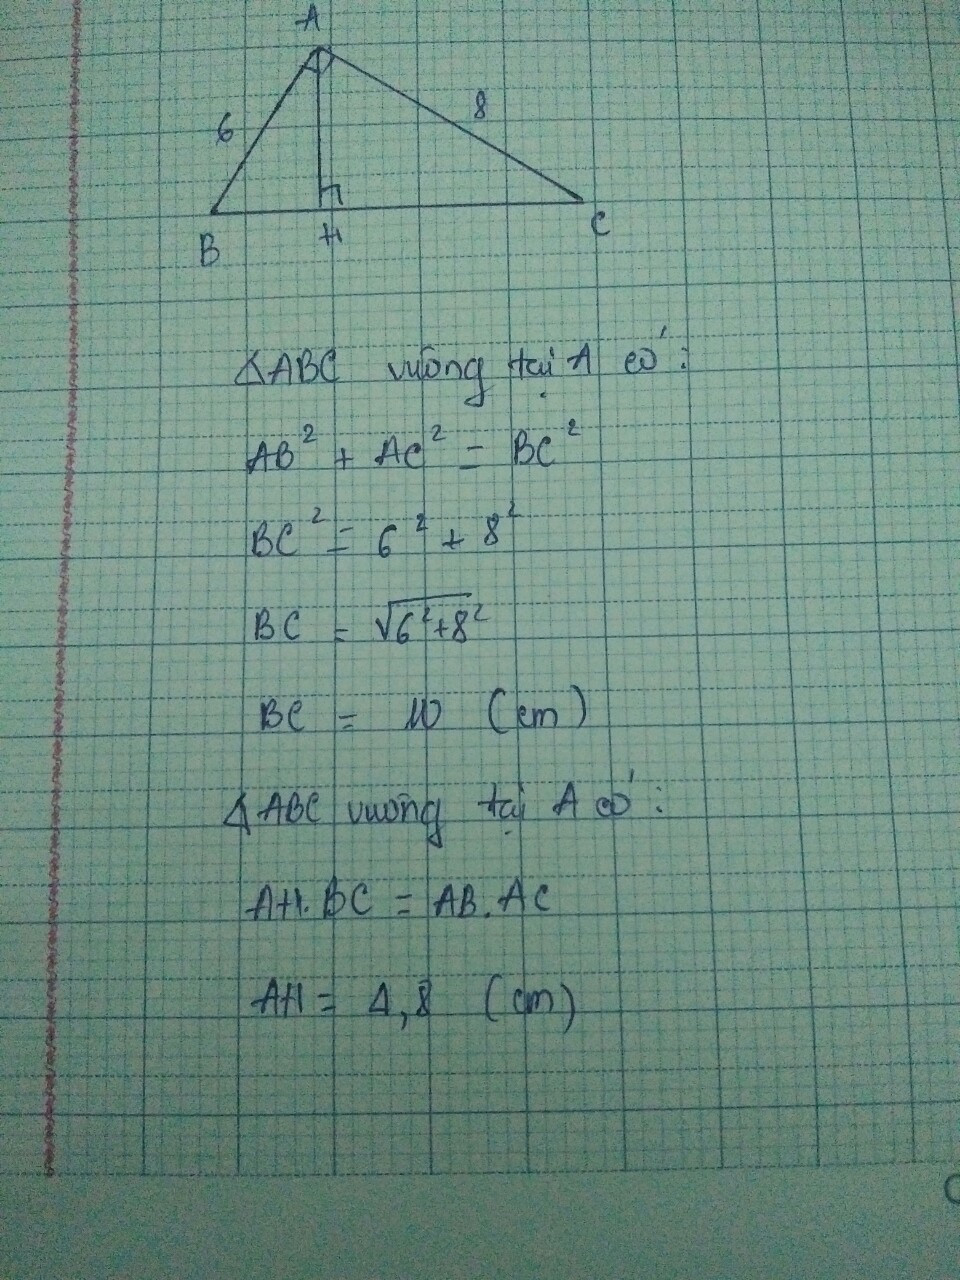 A
6
8
B
H
C
∆ABC vuông tại A có:
AB² + AC² = BC²
BC² = 6² + 8²
BC = √6²+8²
BC = 10 (cm)
∆ABC vuông tại A có:
AH.BC = AB.AC
AH = 4,8 (cm)